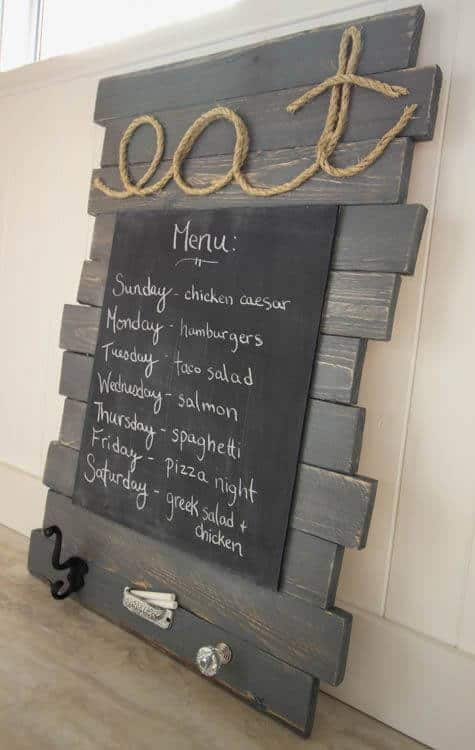 eat
Menu:
Sunday - chicken caesar
Monday - hamburgers
Tuesday - taco salad
Wednesday - salmon
Thursday - spaghetti
Friday - pizza night
Saturday - greek salad +
chicken